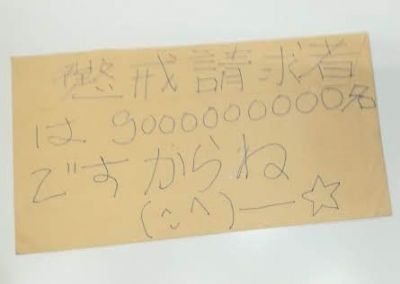 懲戒請求者
は 9000000000名
ですからね
(^_^)—☆